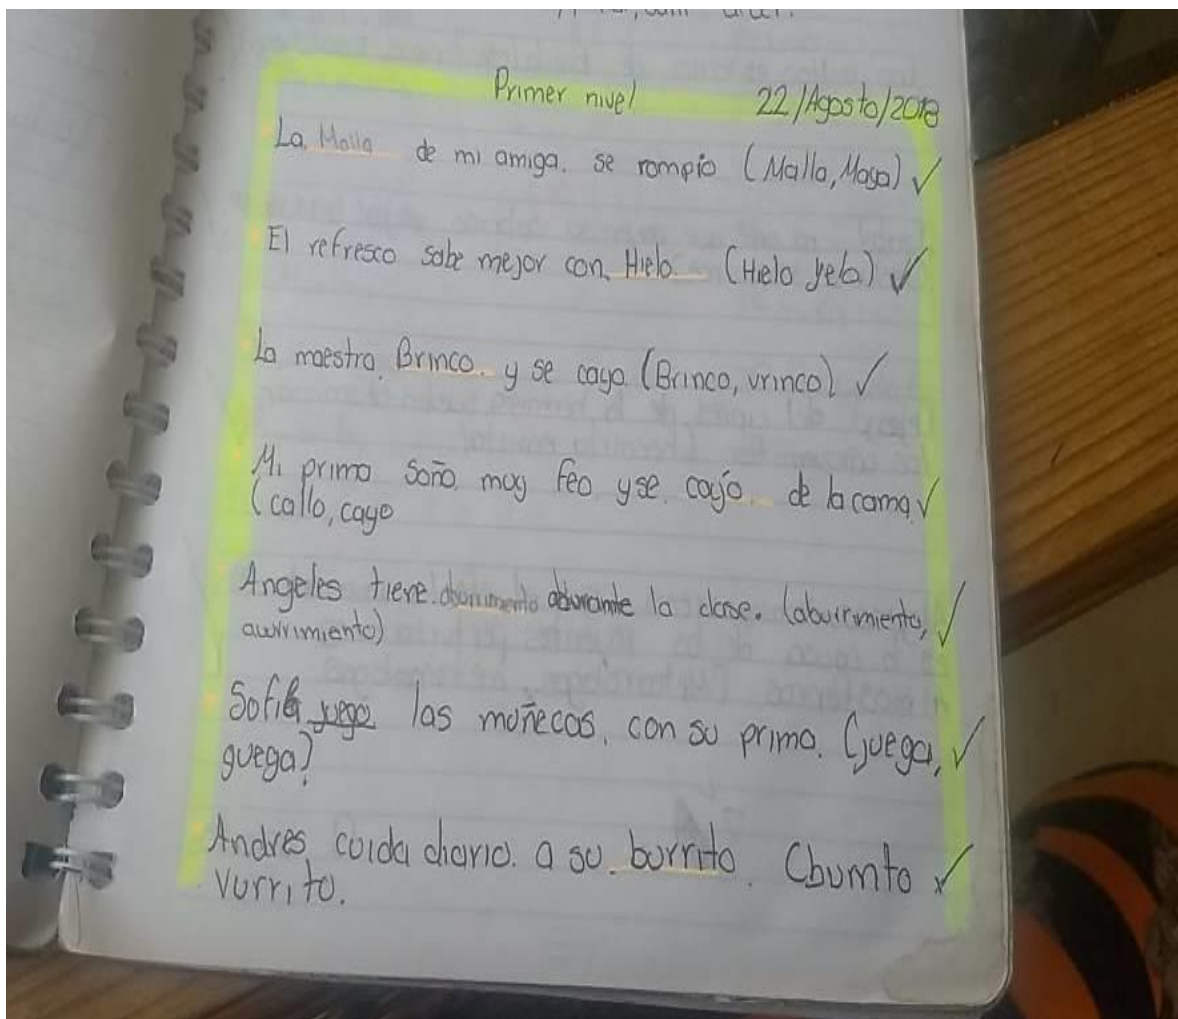 Primer nivel 22/Agosto/2018
La Malla de mi amiga. se rompio (Malla, Maya) ✓
El refresco sabe mejor con Hielo. (Hielo yelo) ✓
La maestra. Brinco. y se cayo (Brinco, vrinco) ✓
Mi primo Soño. muy feo y se. cayó. de la cama. ✓
(callo, cayo
Angeles tiene. aburrimiento durante la clase. (aburrimiento, ✓
awrrimiento)
Sofia juega las muñecas. con su prima. (juega, ✓
guega)
Andres cuida diario. a su. burrito. (burrito ✓
Vurrito.